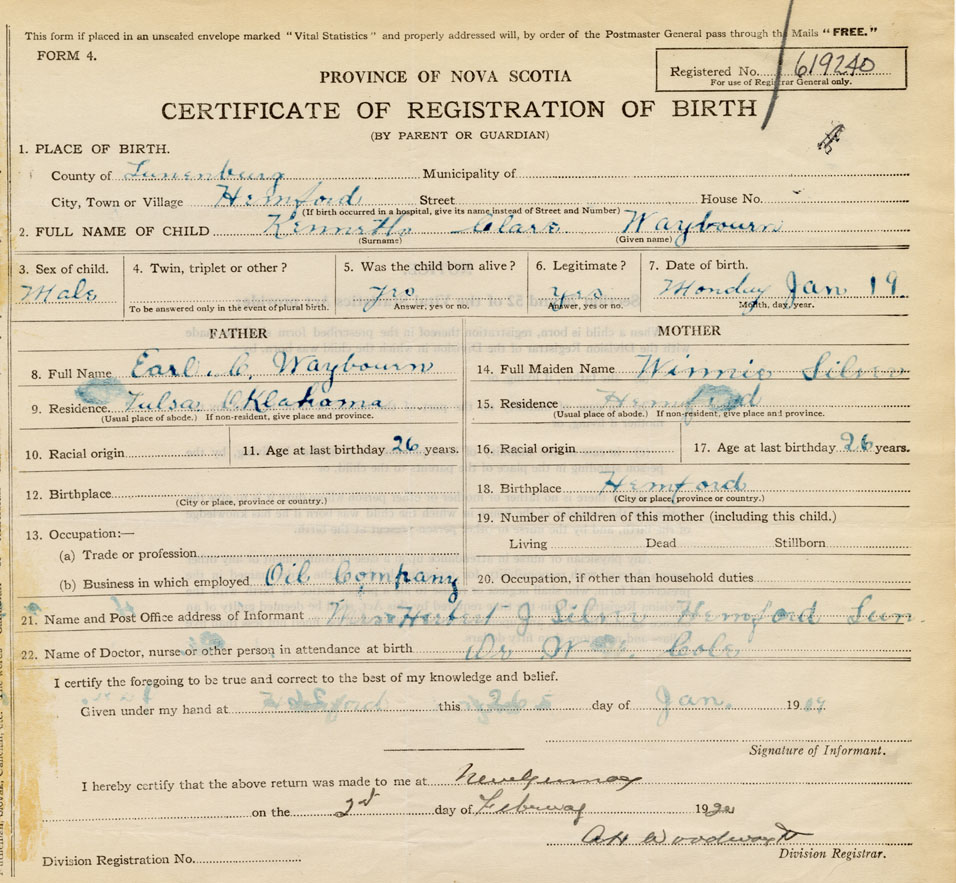 This form if placed in an unsealed envelope marked "Vital Statistics" and properly addressed will, by order of the Postmaster General pass through the Mails "FREE."
FORM 4.
Registered No. 619240
For use of Registrar General only.
PROVINCE OF NOVA SCOTIA
CERTIFICATE OF REGISTRATION OF BIRTH
(BY PARENT OR GUARDIAN)
1. PLACE OF BIRTH.
County of Lunenburg Municipality of
City, Town or Village Hemford Street House No.
(If birth occurred in a hospital, give its name instead of Street and Number)
2. FULL NAME OF CHILD Kenneth Clare Waybourn
(Surname) (Given name)
3. Sex of child. 4. Twin, triplet or other? 5. Was the child born alive? 6. Legitimate? 7. Date of birth.
Male yes yes Monday Jan 19
To be answered only in the event of plural birth. Answer, yes or no. Answer, yes or no. Month, day, year.
FATHER MOTHER
8. Full Name Earl C. Waybourn
9. Residence Tulsa Oklahoma
(Usual place of abode.) If non-resident, give place and province.
10. Racial origin 11. Age at last birthday 26 years.
12. Birthplace
(City or place, province or country.)
13. Occupation:—
(a) Trade or profession
(b) Business in which employed Oil Company
14. Full Maiden Name Winnie Silver
15. Residence Hemford
(Usual place of abode.) If non-resident, give place and province.
16. Racial origin 17. Age at last birthday 26 years.
18. Birthplace Hemford
(City or place, province or country.)
19. Number of children of this mother (including this child.)
Living Dead Stillborn
20. Occupation, if other than household duties
21. Name and Post Office address of Informant Mrs Herbert J Silver Hemford Lun.
22. Name of Doctor, nurse or other person in attendance at birth Dr W Cole
I certify the foregoing to be true and correct to the best of my knowledge and belief.
Given under my hand at Hemford this day of Jan. 19
Signature of Informant.
I hereby certify that the above return was made to me at New Germany
on the 2d day of February 1920
A H Woodworth
Division Registration No. Division Registrar.